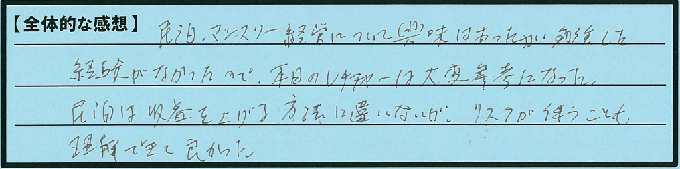 【全体的な感想】
民泊、マンスリー経営について興味はあったが、勉強した
経験がなかったので、本日のレクチャーは大変参考になった。
民泊は収益を上げる方法に違いないが、リスクが伴うことも、
理解できて良かった